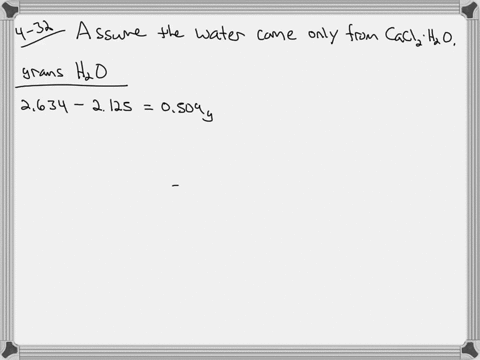 4-32 Assume the water came only from CaCl₂·H₂O.
grams H₂O
2.634 - 2.125 = 0.509g
-